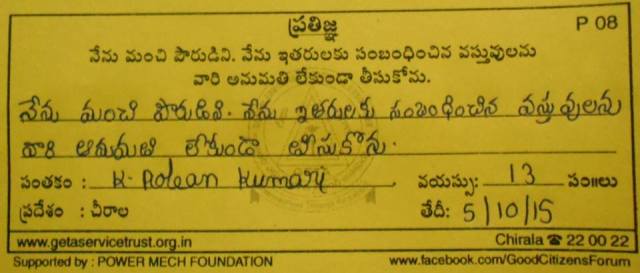 ప్రతిజ్ఞ P 08
నేను మంచి పౌరుడిని. నేను ఇతరులకు సంబంధించిన వస్తువులను
వారి అనుమతి లేకుండా తీసుకోను.
నేను మంచి పౌరుడిని. నేను ఇతరులకు సంబంధించిన వస్తువులను
వారి అనుమతి లేకుండా తీసుకొను.
సంతకం : K. Kumari వయస్సు: 13 సం॥లు
ప్రదేశం : చీరాల తేదీ: 5/10/15
www.getaservicetrust.org.in Chirala ☎ 22 00 22
Supported by : POWER MECH FOUNDATION www.facebook.com/GoodCitizensForum